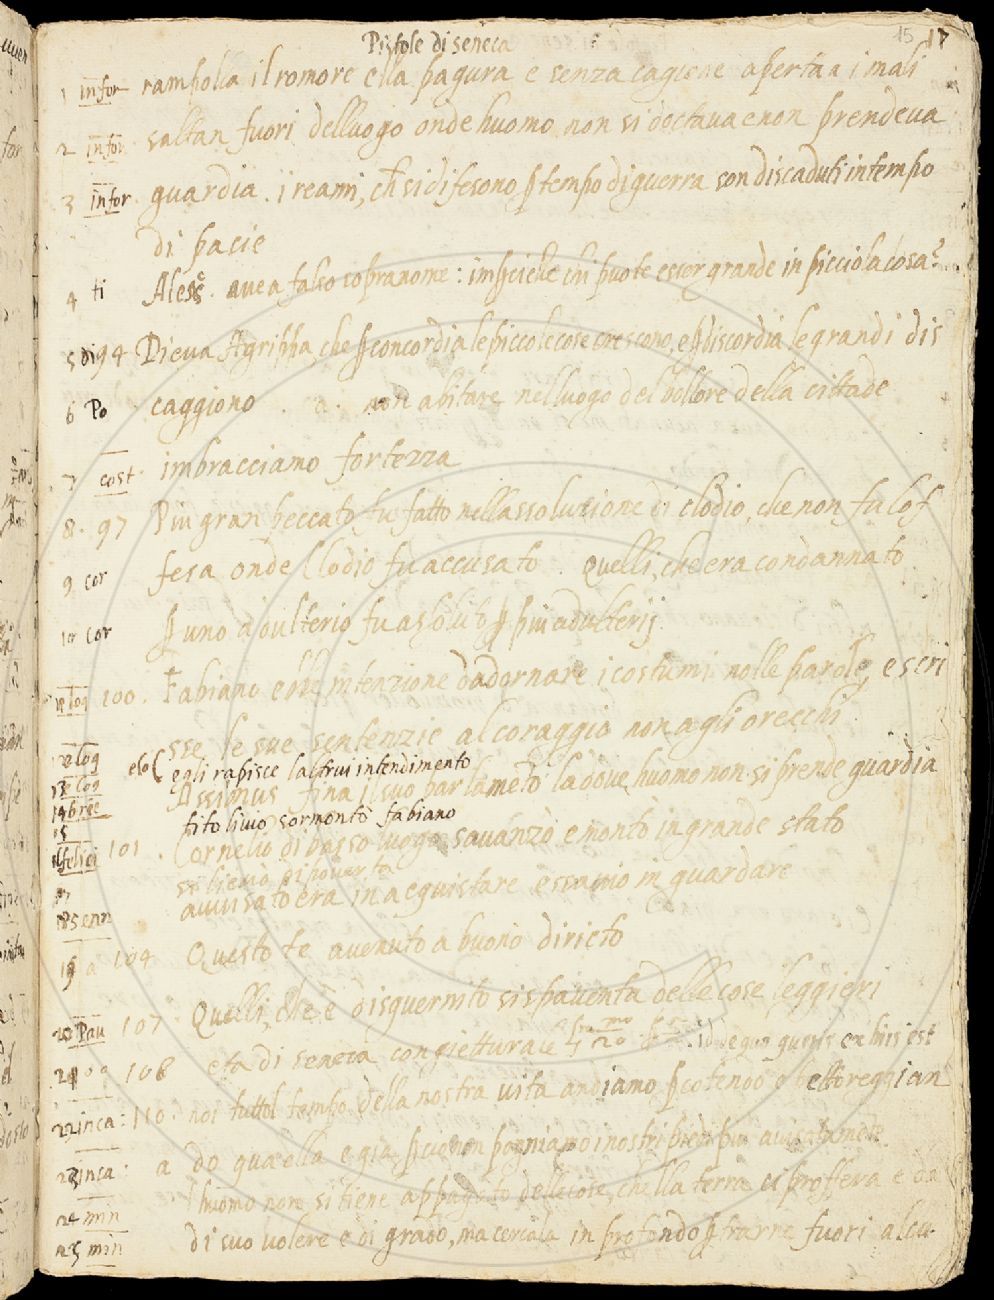 Pistole di seneca
15 17
1 infor rampolla il romore e lla pagura e senza cagione aperta a i mali
2 infor saltan fuori delluogo onde huomo non si doctava e non prendeva
3 infor guardia . i reami, ch si difesono p tempo di guerra son discaduti in tempo
di pacie
4 ti Aless. avea falso sopranome : impcioche chi puote esser grande in picciola cosa?
5 di 94 Dieva Agrippa, che p concordia le piccole cose crescono, e p discordia le grandi dis
6 Po caggiono . a . non abitare nelluogo del bollore della cittade
7 cost imbracciamo fortezza
8 . 97 Piu gran peccato fu fatto nella ssoluzione di clodio, che non fu lof
9 cor fesa onde Clodio fu accusato . Quelli, che era condannato
10 cor p uno adulterio fu asolito p piu adulterij
log 100 . Fabiano ebbe intenzione dadornare i costumi nolle parole, e scri
12 log sse le sue sentenzie al coraggio non agli orecchi
13 log elo( egli rapisce laltrui intendimento
14 bree Assimus fina il suo parlameto la dove huomo non si prende guardia
15 tito livio sormonto fabiano
felici 101 . Cornelio di basso luogo savanzo e monto in grande stato
17 di poverta
18 senn avvisato era in acquistare e ssavio in guardare
19 a 104 Questo te avenuto a buono diricto
20 Pau 107 . Quelli, che è disguernito si spaventa delle cose leggieri
21 108 eta di seneca congietturale . ex his est
22 inca : 110 noi tuttol tempo della nostra vita andiamo pcotendo e bettoreggian
23 inca : a do qua e lla e gia pcio non ponniamo i nostri piedi piu avisatamete
24 min lhuomo non si tiene appagato delle cose, che lla terra ci proffera e da
25 min di suo volere e di grado, ma cercala in profondo p trarne fuori alcu-